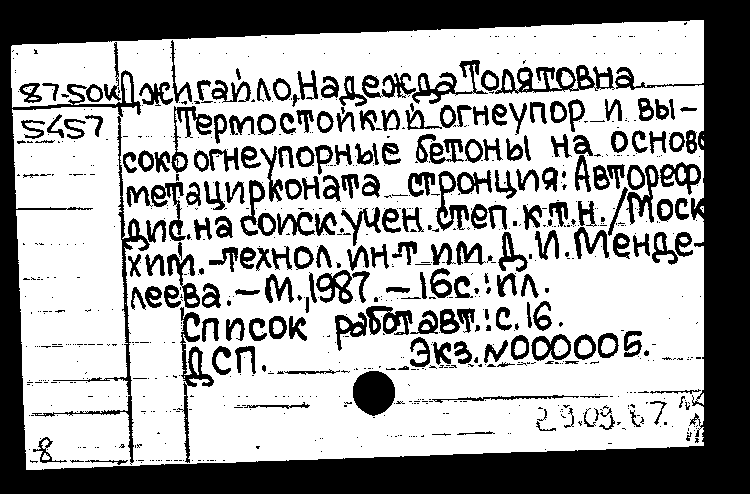 87-50к Джигайло, Надежда Толятовна.
5457 Термостойкий огнеупор и вы-
сокоогнеупорные бетоны на основе
метацирконата стронция: Автореф.
дис. на соиск. учен. степ. к.т.н. / Моск
хим.-технол. ин-т им. Д. И. Менде-
леева. – М., 1987. – 16 с.: ил.
Список работ авт.: с. 16.
ДСП. Экз. N000005.
29.09.87.
8